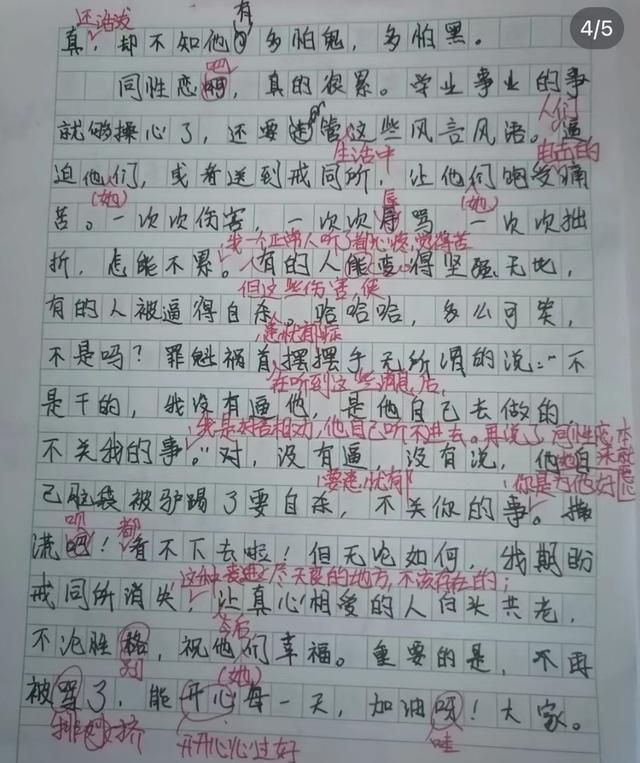 4/5
还活泼 有
真，却不知他多怕鬼，多怕黑。
吧
同性恋啊，真的很累。学业事业的事
就够操心了，还要管这些风言风语。逼
人们
生活中 电击的
迫他们，或者送到戒同所，让他们饱受痛
(她) 辱 (她)
苦。一次次伤害，一次次辱骂，一次次拙
我一个正常人听了都觉得苦
折，怎能不累。有的人能变得坚强无比，
但这些伤害使
有的人被逼得自杀。哈哈哈，多么可笑，
不是吗？罪魁祸首摆摆手无所谓的说：“不
在听到这些消息后，
是干的，我没有逼他，是他自己去做的，
我是对苦相劝，他自己听不进去。再说了同性恋本来就
不关我的事。”对，没有逼，没有说，他自
你是为他好
己脑袋被驴踢了要自杀，不关你的事。撒
呗 都
谎吧！看不下去啦！但无论如何，我期盼
这种丧尽天良的地方，不该存在的；
戒同所消失，让真心相爱的人白头共老，
今后
不论性格，祝他们幸福。重要的是，不再
别 (她)
被骂了，能开心每一天，加油呀！大家。
排挤 开开心心过好 哇